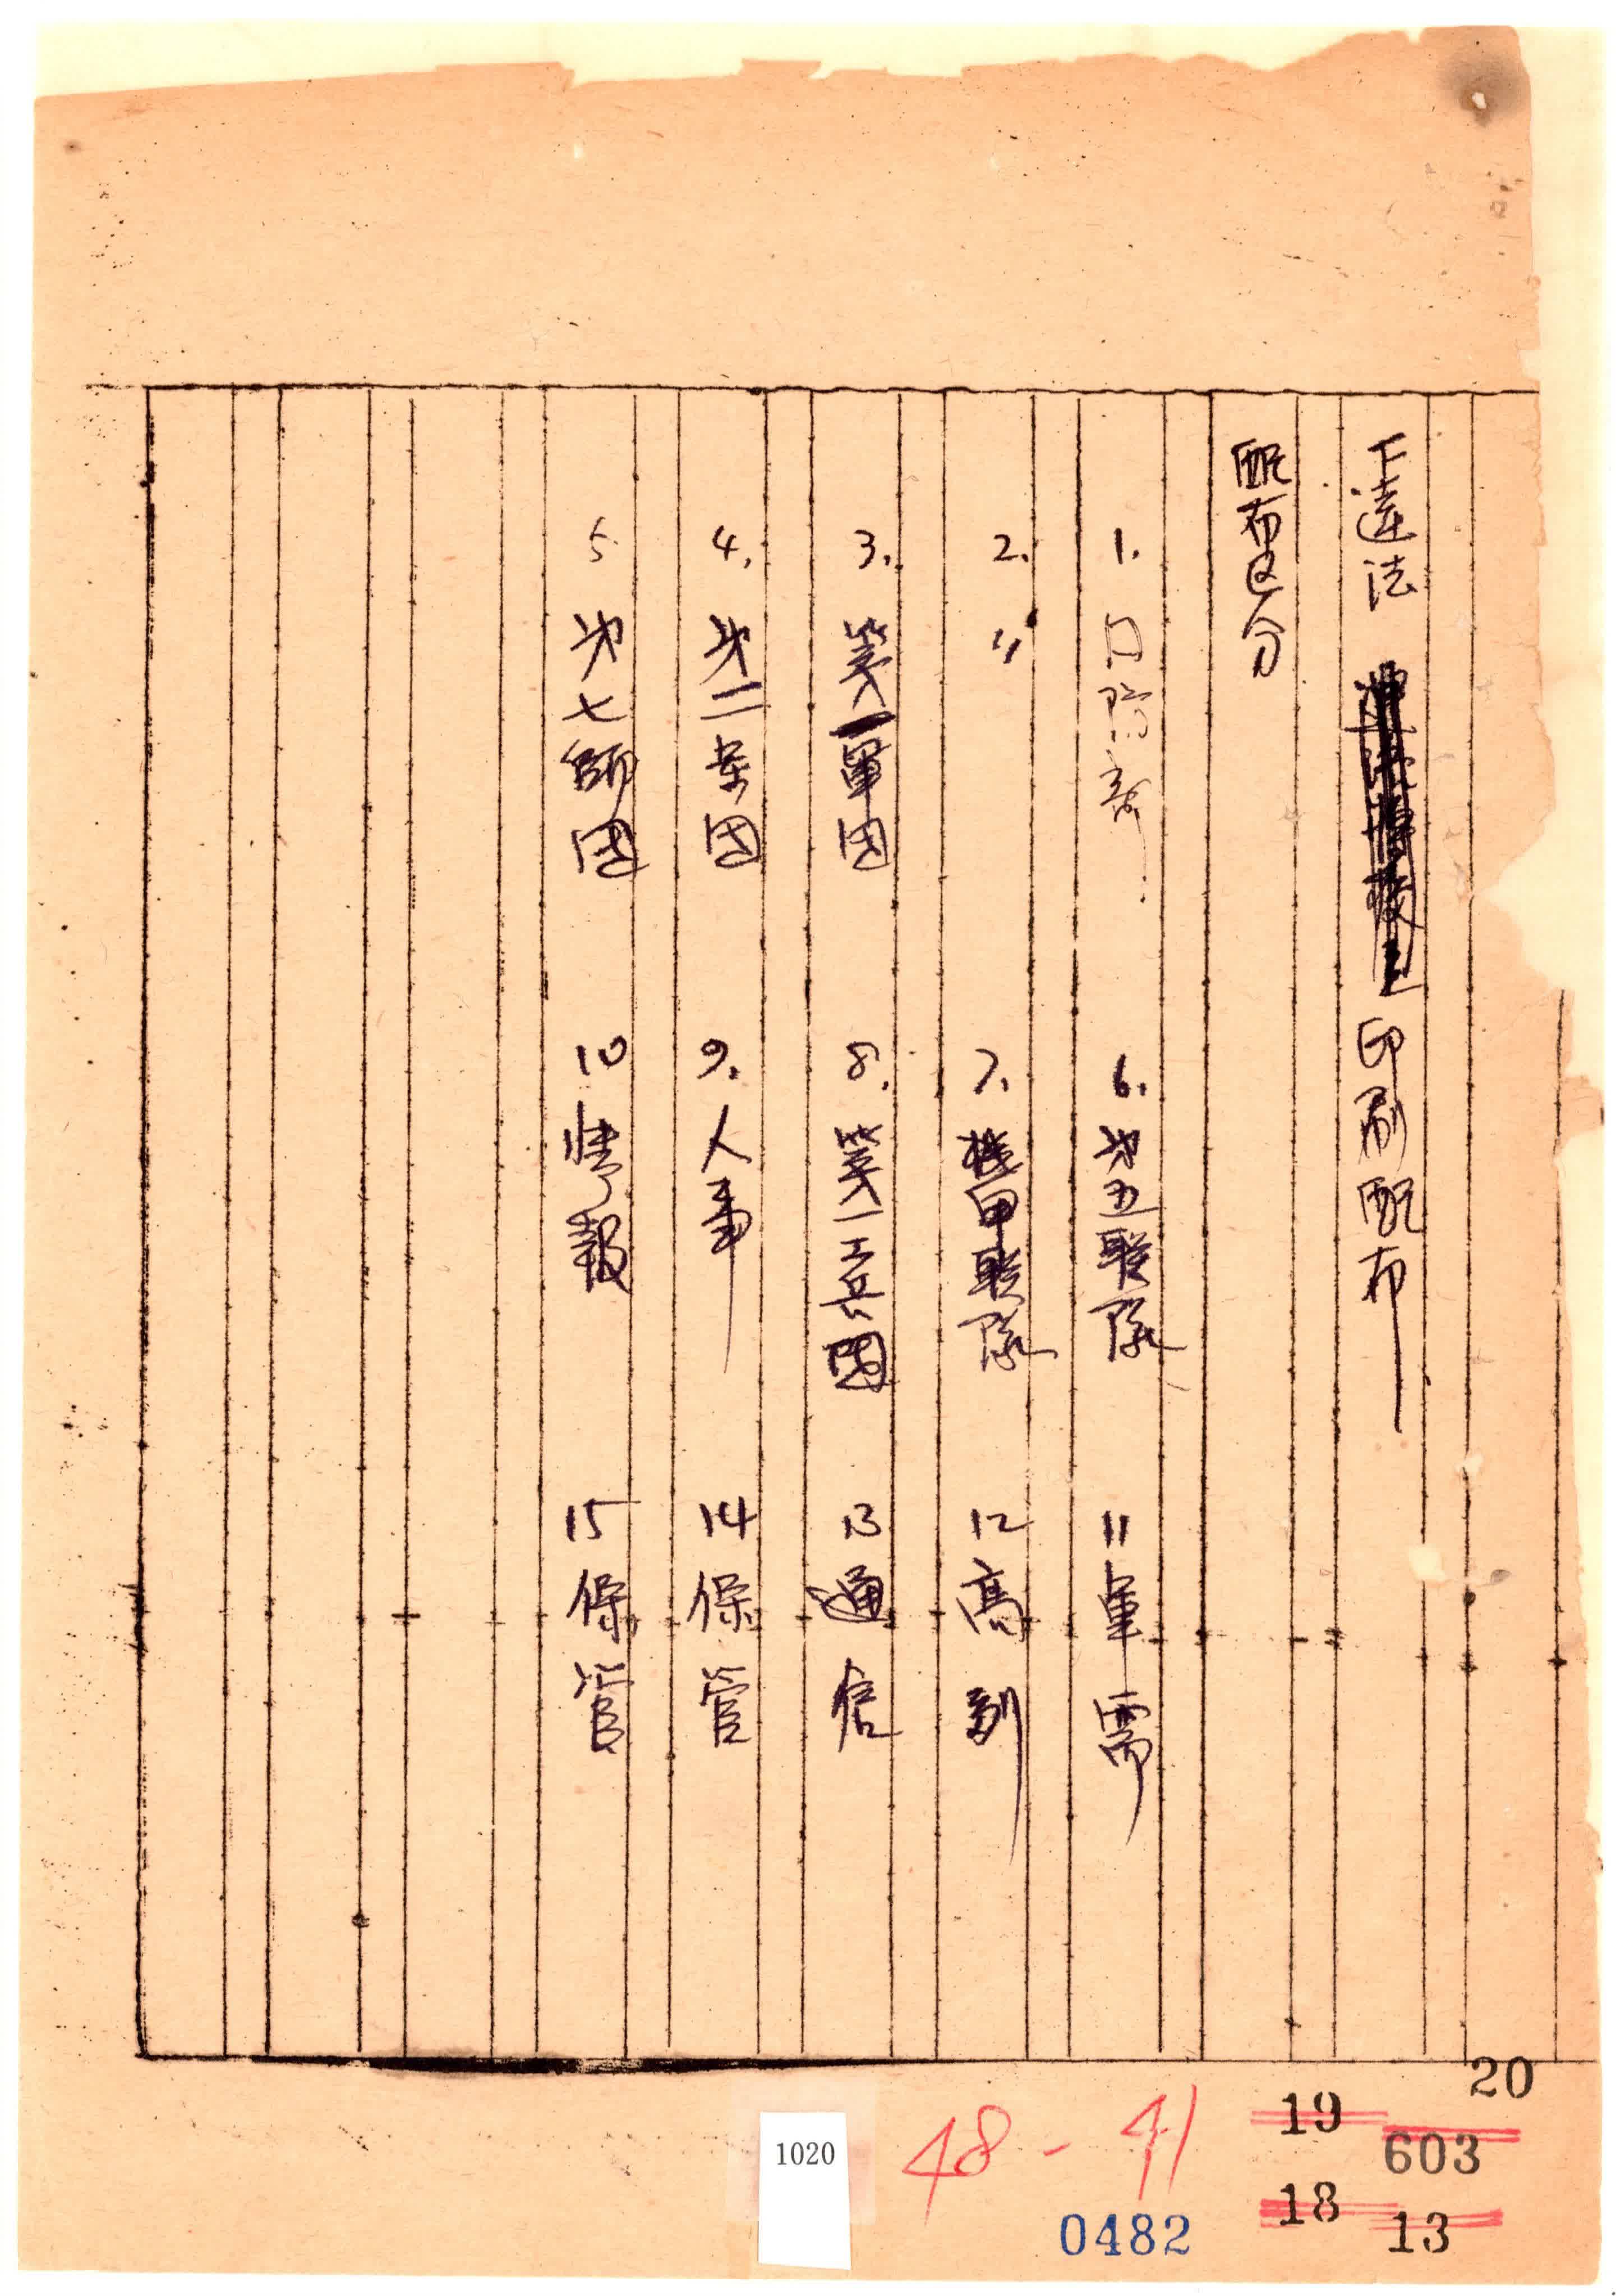 下達法 印刷配布
配布区分
1.
2. 〃
3. 第一軍团
4. 才二兵团
5 才七師团
6. 才五联隊
7. 機甲联隊
8. 第一工兵团
9. 人事
10 情報
11 軍需
12 高副
13 通信
14 保管
15 保管
20
19
603
18
13
48-41
0482
1020